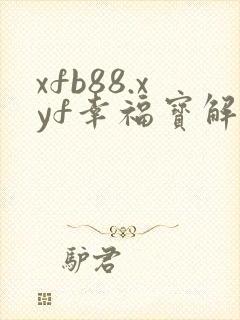 xfb88.x
yf幸福寶解
驴君